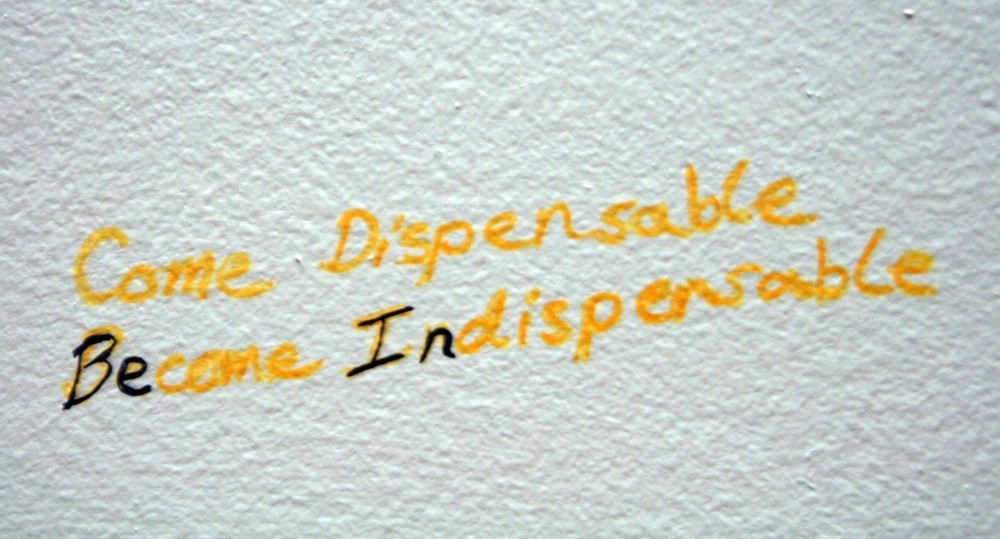 Come Dispensable
Become Indispensable